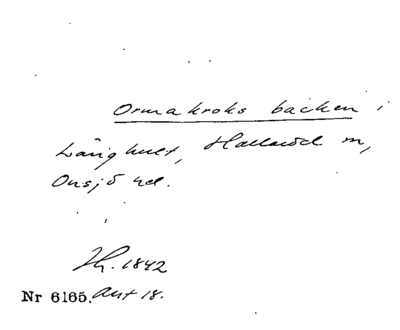 Ormakroks backen i
Långhult, Hallaröd m,
Onsjö hd.
Th. 1842
Nr 6165. Ant 18.